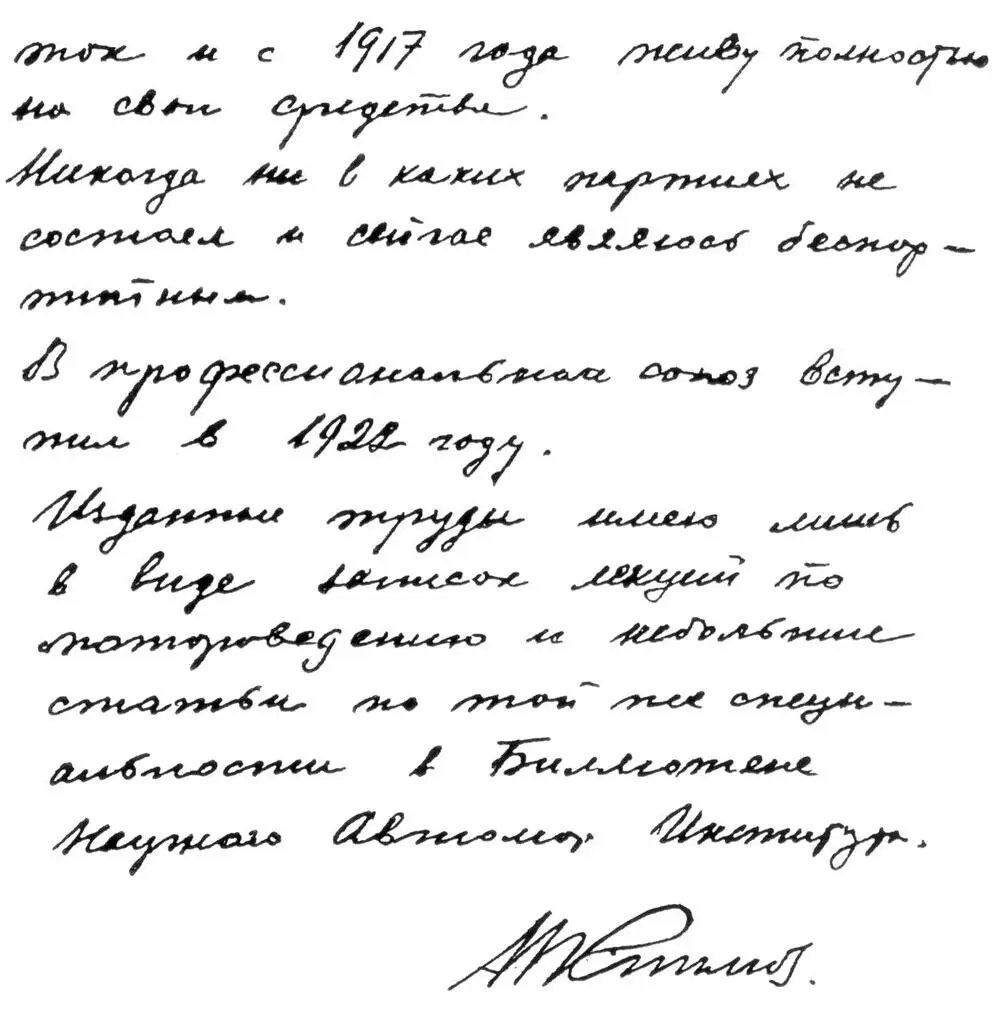 ток и с 1917 года живу полностью
на свои средства.
Никогда ни в каких партиях не
состоял и сейчас являюсь беспар-
тийным.
В профессиональный союз всту-
пил в 1922 году.
Изданные труды имею лишь
в виде записок лекций по
мотороведению и небольшие
статьи по той же специ-
альности в Бюллютене
Научного Автомот. Института.